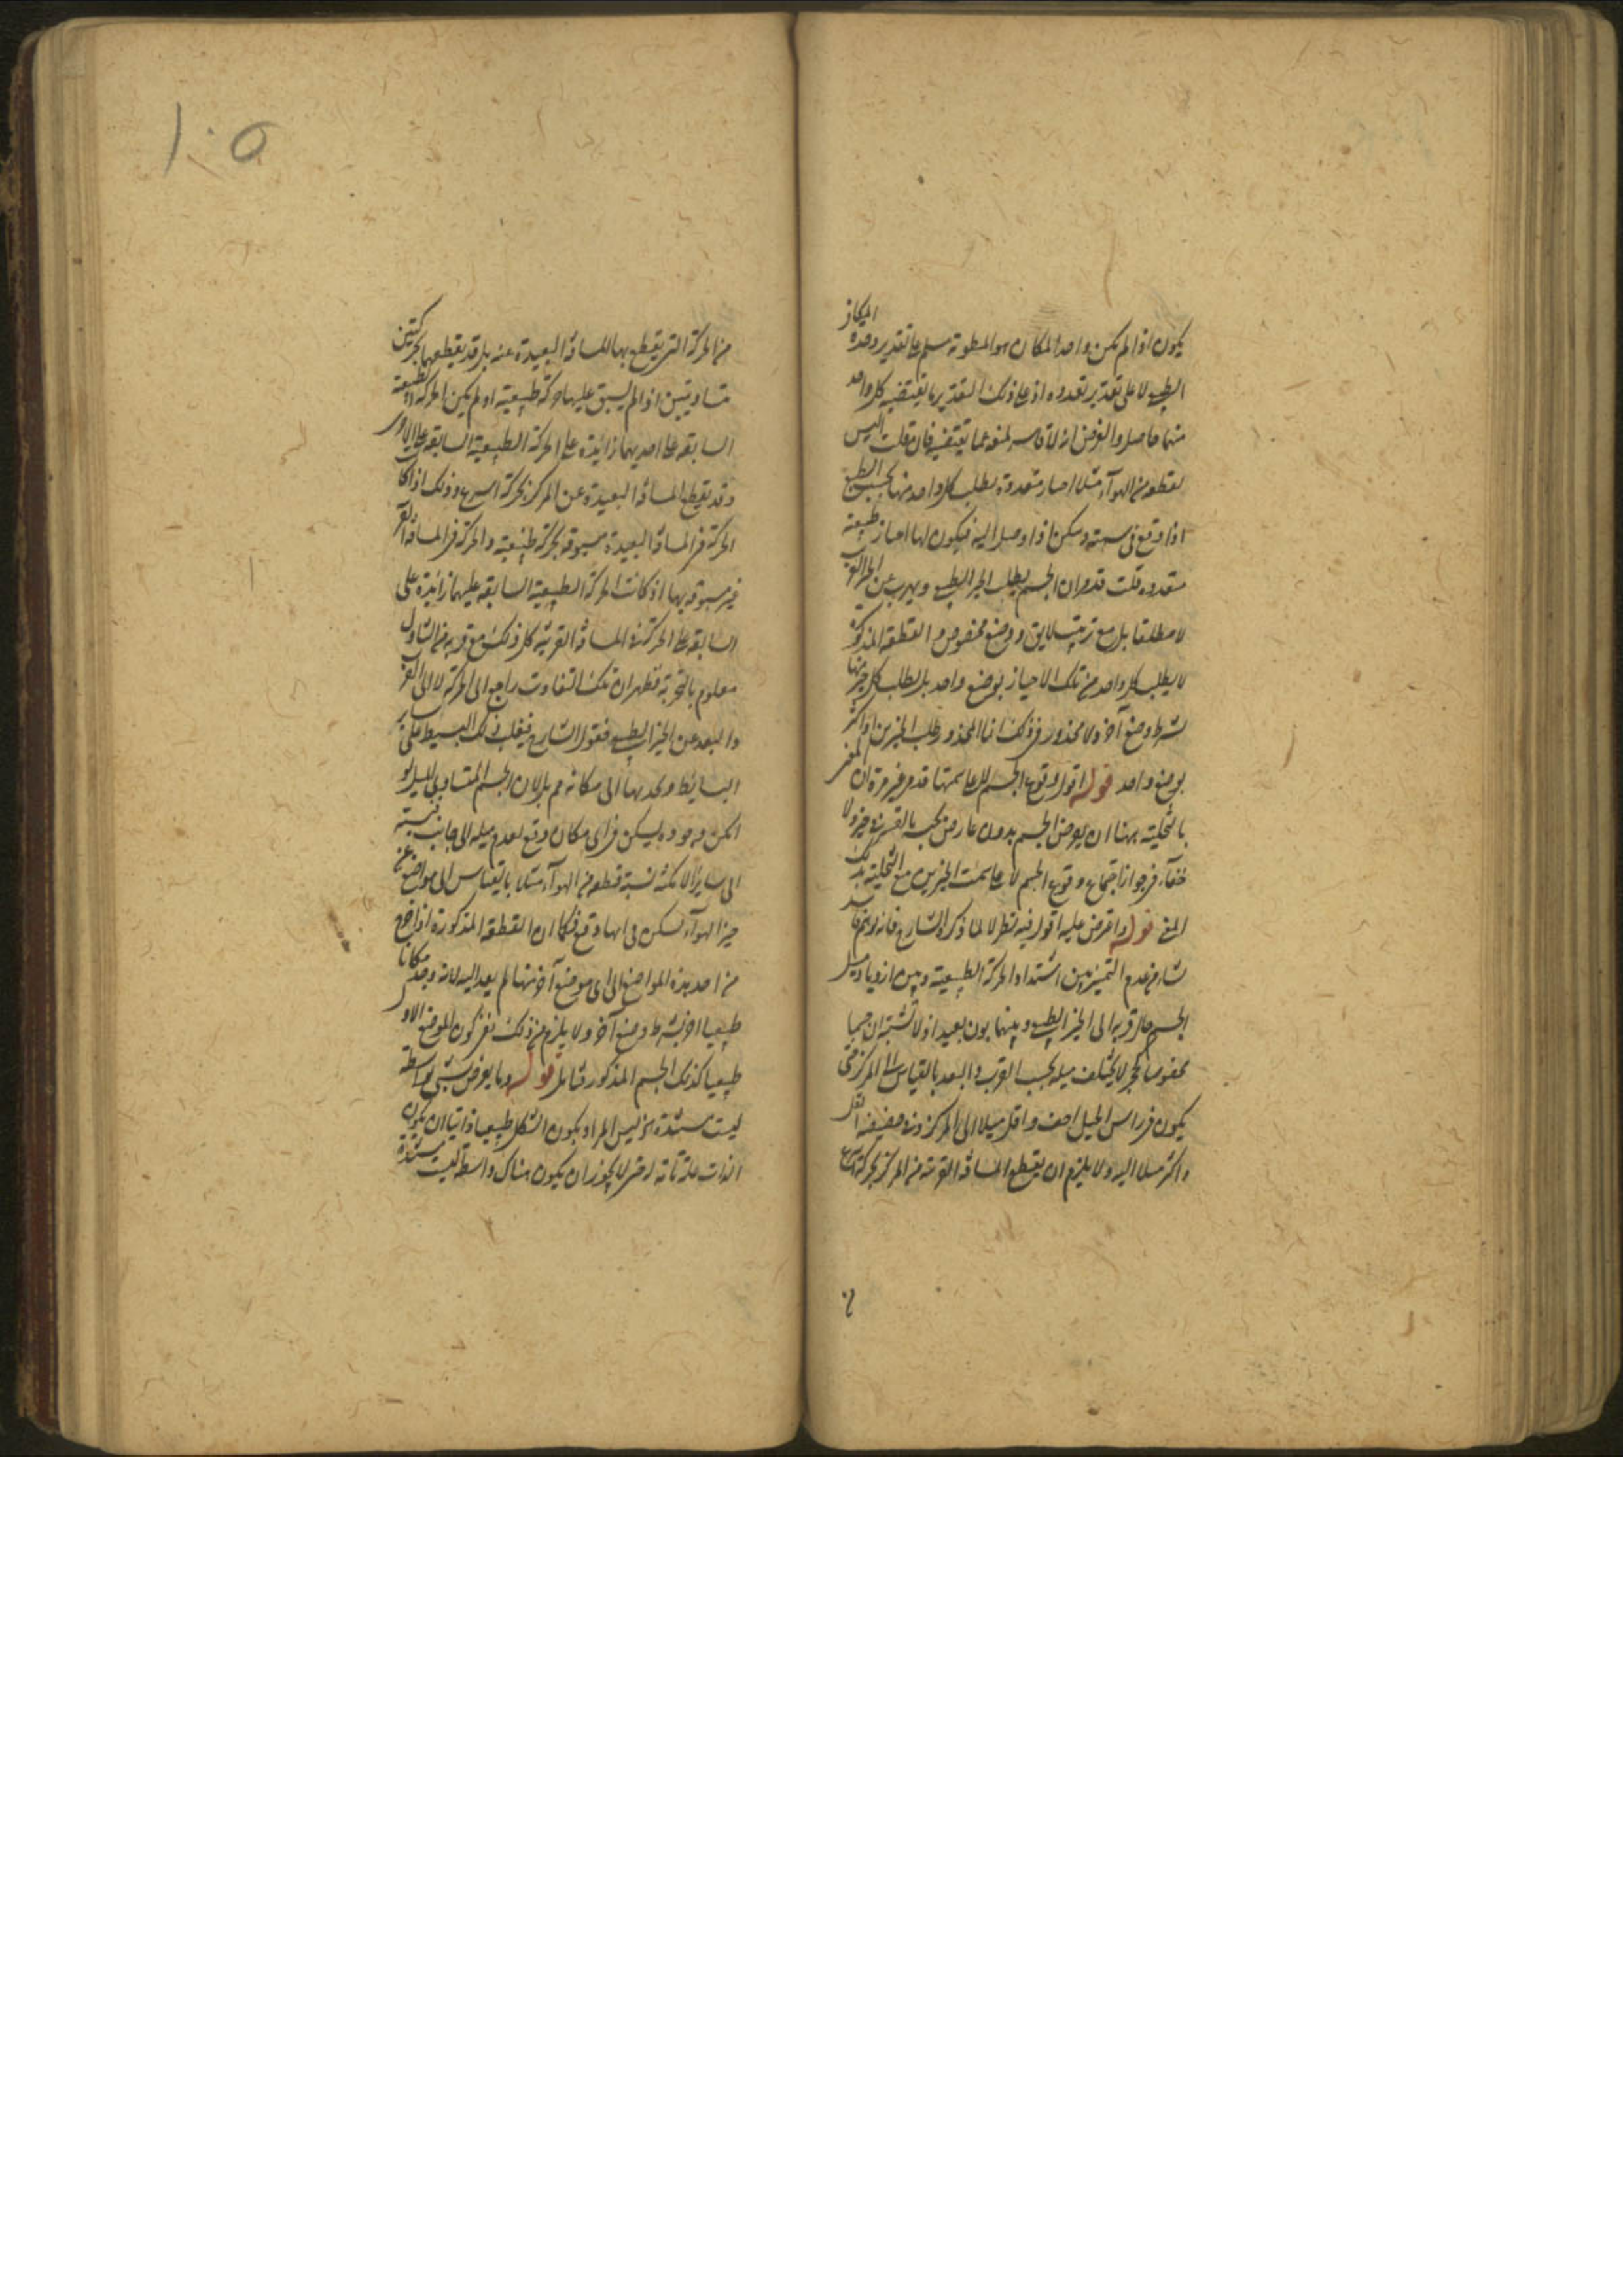 يكون اذا لم يكن واحد المكان هو المطوية سلم على تقدير وحدة المكان
الطبيعى لا على تقدير تعدده اذ على ذلك التقدير ما يقتضيه كل واحد
منها حاصل والفرض انه لا قاسر يمنعه عما يقتضيه فان قلت اليس
لقطعة من الهواء مثلا احياز متعددة يطلب كل واحد منها بحسب الطبع
اذا وقع فى سمته وسكن اذا وصل اليه فيكون لها احياز طبيعية
متعددة قلت قدمر ان الجسم يطلب الحيز الطبيعى ويهرب عن الحيز الغريب
لا مطلقا بل مع ترتيب لايق ووضع مخصوص والقطعة المذكورة
لا يطلب كل واحد من تلك الاحياز بوضع واحد بل يطلب كل حيز منها
بشرط وضع آخر ولا محذور فى ذلك انما المحذور طلب الحيزين او اكثر
بوضع واحد قوله اقول وقوع الجسم لا على سمتها قدمر غير مرة ان المعنى
بالتخلية ههنا ان يفرض الجسم بدون عارض بحسب القسر فى حيز ولا
خفاء فى جواز اجتماع وقوع الجسم لا على سمت الحيزين مع التخلية بذلك
المعنى قوله واعترض عليه اقول فيه نظر لا لما ذكره الشارح فانه وهم فاسد
نشاء من عدم التمييز بين اشتداد الحركة الطبيعية وبين ازدياد ميل
الجسم حال قربه الى الحيز الطبيعى وبينهما بون بعيد اذ لا تشتبه ان جسما
مخصوصا كحجر لا يختلف ميله بحسب القرب والبعد بالقياس الى المركز حتى
يكون فى راس الجبل اخف واقل ميلا الى المركز وفى حضيضه اثقل
واكثر ميلا اليه ولا يلزم ان يقطع المسافة القريبة من المركز بحركة اسرع
من الحركة التى يقطع بها المسافة البعيدة عنه بل قد يقطعهما بحركتين
متساويتين اذا لم يسبق عليهما حركة طبيعية او لم يكن الحركة الطبيعية
السابقة على احديهما زائدة على الحركة الطبيعية السابقة على الاخرى
وقد يقطع المسافة البعيدة عن المركز بحركة اسرع وذلك اذا كان
الحركة فى المسافة البعيدة مسبوقة بحركة طبيعية والحركة فى المسافة القريبة
غير مسبوقة بها اذ كانت الحركة الطبيعية السابقة عليهما زائدة على
السابقة على الحركة فى المسافة القريبة كل ذلك مع قربه من التناول
معلوم بالتجربة فظهر ان تلك التفاوت راجع الى الحركة لا الى القرب
والبعد عن الحيز الطبيعى فقول الشارح فيغلب ذلك البسيط على ساير
البسائط ويجذبها الى مكانه مم بل لان الجسم المتساوى الميل لو
امكن وجوده ليسكن فى اى مكان وقع لعدم ميله الى جانب نسبته
الى ساير الامكنة نسبة قطعة من الهواء مثلا بالقياس الى مواضع من
حيز الهواء يسكن فى ايها وقع فكما ان القطعة المذكورة اذا اخرج
من احد هذه المواضع الى اى موضع آخر منها لم يعد اليه لانه وجد مكانا
طبيعيا اخر بشرط وضع آخر ولا يلزم من ذلك نفى كون الموضع الاول
طبيعيا كذلك الجسم المذكور فتامل قوله وما يعرض لشئ بواسطة
ليست مستندة الخ ليس المراد بكون الشكل طبيعيا ذاتيا ان يكون
الذات علة تامة له حتى لا يجوز ان يكون هناك واسطة ليست مستندة